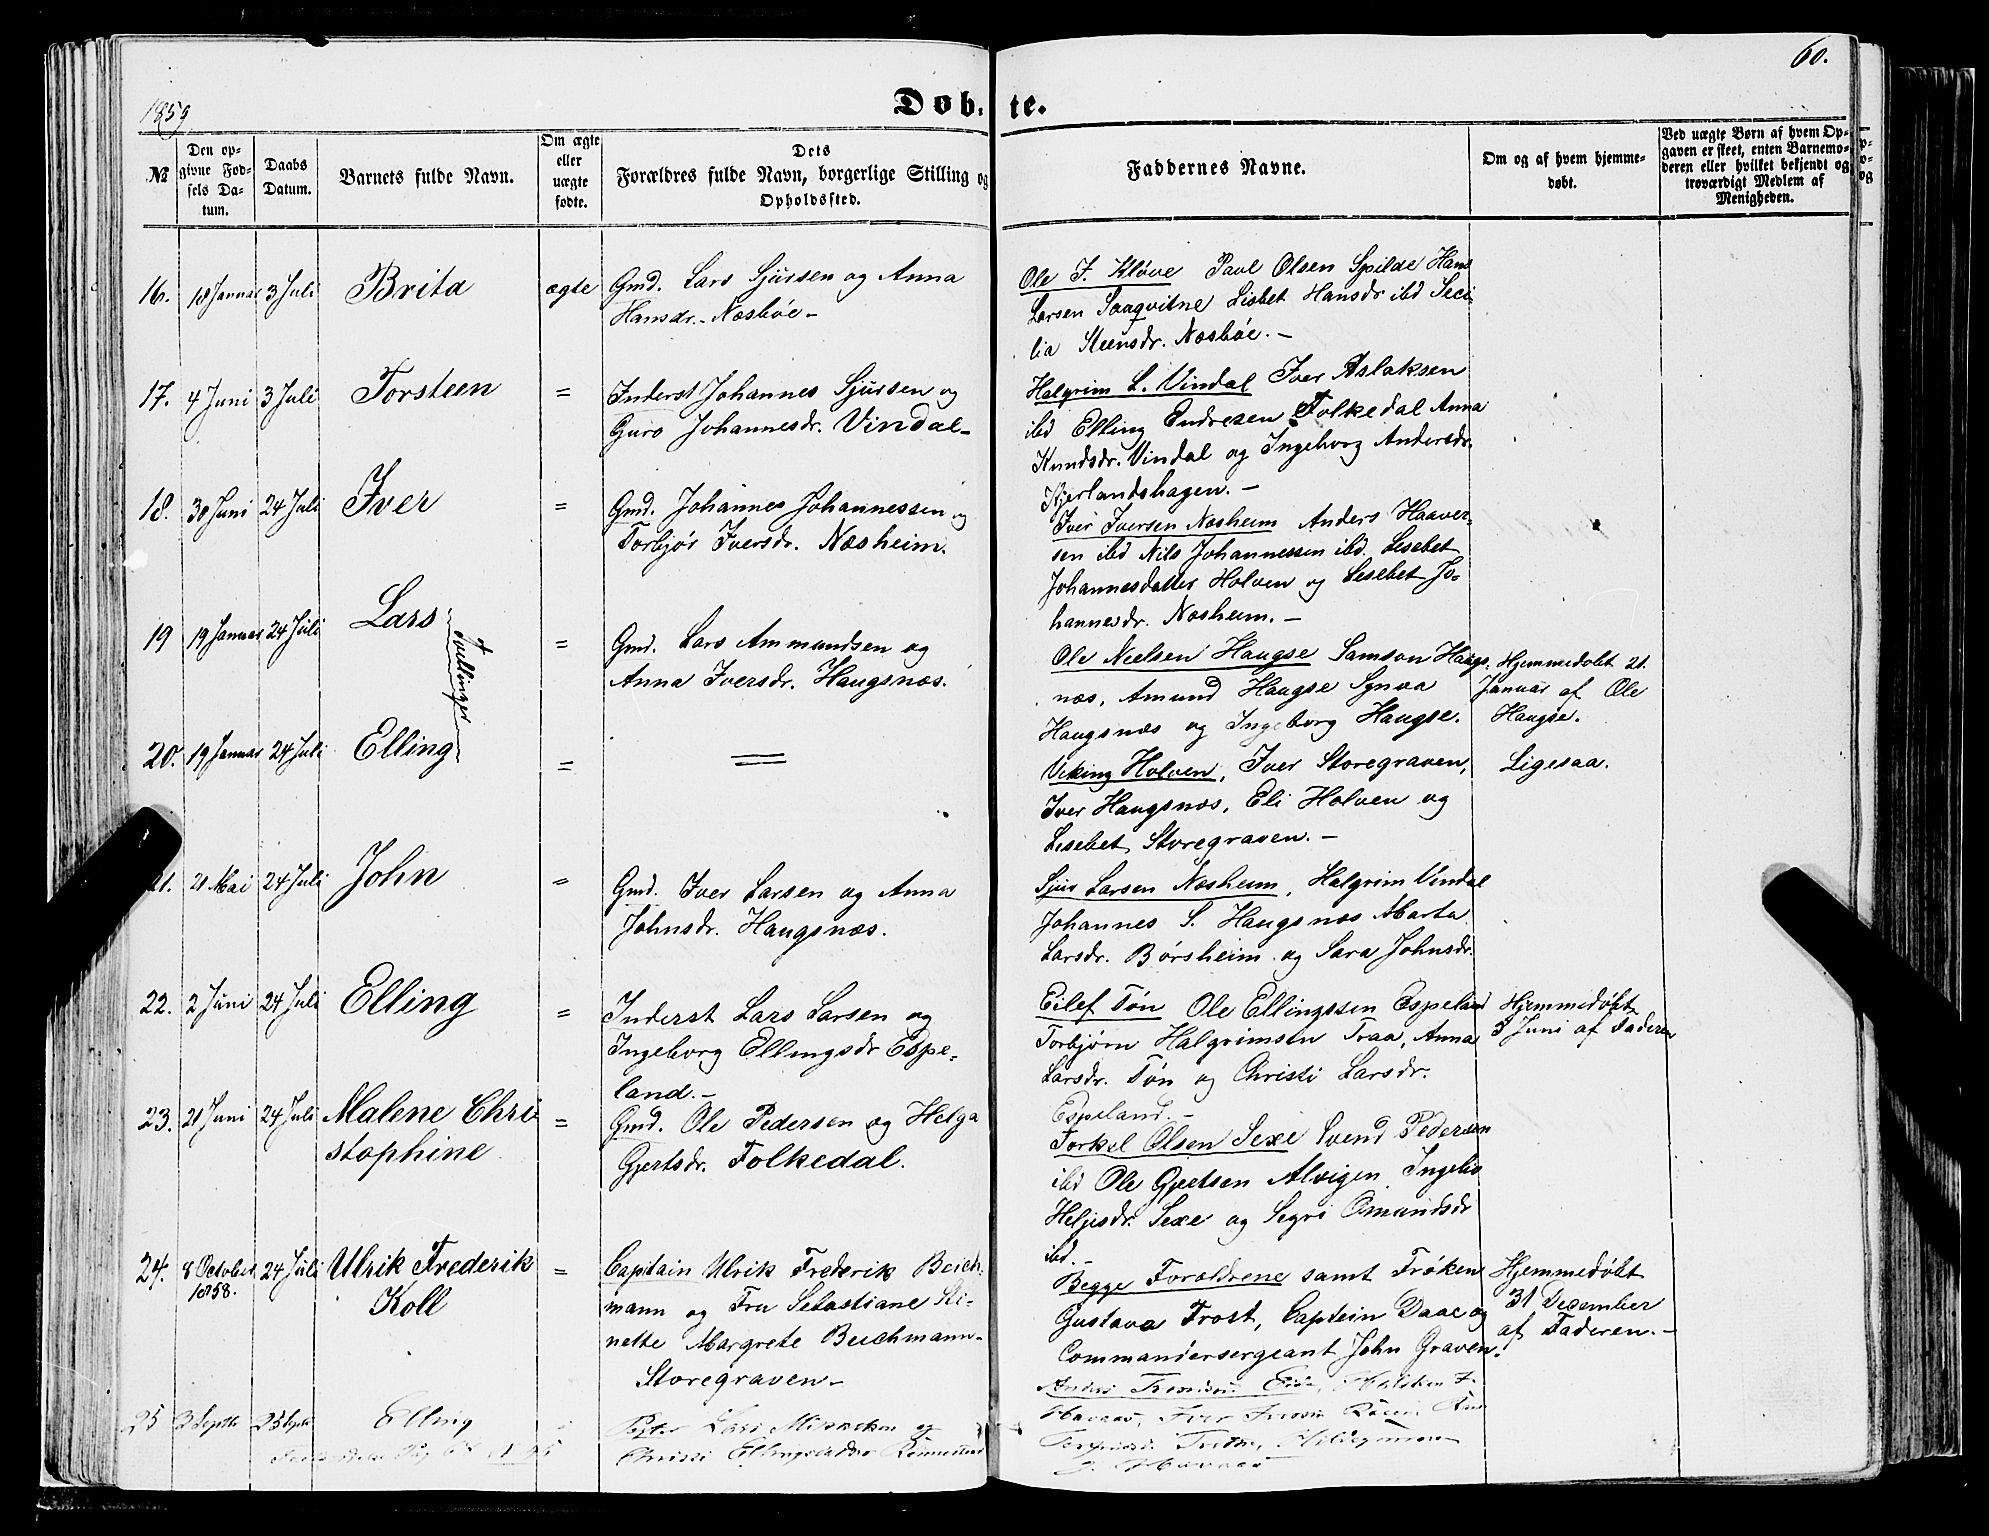 60.
1859
Døb- te.
№
Den opgivne Fødsels Datum.
Daabs Datum.
Barnets fulde Navn.
Om ægte eller uægte fødte.
Dets Forældres fulde Navn, borgerlige Stilling og Opholdssted.
Faddernes Navne.
Om og af hvem hjemmedøbt.
Ved uægte Børn af hvem Opgaven er skeet, enten Barnemoderen eller hvilket bekjendt og troværdigt Medlem af Menigheden.
16. 18 Januar 3 Juli Brita ægte Gmd. Lars Sjursen og Anna
Hansdr. Næsbøe -
Ole J. Kløve Paul Olsen Spilde Hans
Larsen Saaqvitne Lisbet Hansdr ibd Seci
lia Steensdr. Næsbøe. -
17. 4 Juni 3 Juli Torsteen = Inderst Johannes Sjursen og
Guro Johannesdr. Vindal -
Halgrim L. Vindal Iver Aslaksen
ibd Elling Endresen Folkedal Anna
Knudsdr. Vindal og Ingeborg Andersdr.
Kjerlandshagen. -
18. 30 Juni 24 Juli Iver = Gmd. Johannes Johannessen og
Torbjør Iversdr. Næsheim.
Iver Iversen Næsheim Anders Haaver-
sen ibd Nils Johannessen ibd. Lesebet
Johannesdatter Holven og Lesebet Jo-
hannesdr. Næsheim. -
19 19 Januar 24 Juli Lars = Gmd. Lars Ammundsen og
Anna Iversdr. Haugsnæs.
Tvillinger
Ole Nielsen Haugse Samson Haugs-
næs, Amund Haugse Synva
Haugsnæs og Ingeborg Haugse.
Hjemmedøbt 21.
Januar af Ole
Haugse.
20. 19 Januar 24 Juli Elling = =
Viking Holven, Iver Storegraven,
Iver Haugsnæs, Eli Holven og
Lesebet Storegraven. -
Ligesaa.
21. 21 Mai 24 Juli John = Gmd. Iver Larsen og Anna
Johnsdr. Haugsnæs.
Sjur Larsen Næsheim, Halgrim Vindal
Johannes S. Haugsnæs Marta
Larsdr. Børsheim og Sara Johnsdr.
22. 2 Juni 24 Juli Elling = Inderst Lars Larsen og
Ingeborg Ellingsdr Espe-
land. -
Eilef Tøn Ole Ellingssen Espeland
Torbjørn Halgrimsen Traa, Anna
Larsdr. Tøn og Christi Larsdr.
Espeland. -
Hjemmedøbt
3 Juni af Faderen
23. 21 Juni 24 Juli Malene Chri
stophine = Gmd. Ole Pedersen og Helga
Gjertsdr. Folkedal.
Torkel Olsen Sexe Svend Pedersen
ibd Ole Gjertsen Alvigen Ingebor
Heljesdr. Sexe og Segri Omundsdr
ibd. -
24. 8 October 1858. 24 Juli Ulrik Frederik
Koll = Capitain Ulrik Frederik Beich-
mann og Fru Sebastiane Sti-
nette Margrete Beichmann -
Storegraven -
Begge Forældrene samt Frøken
Gustava Frost, Captein Daae og
Commandersergeant John Graven.
Hjemmedøbt
31 December
af Faderen. -
25 3 Septbr 25 Septbr Elling
Lars
Christi Ellingsdatter